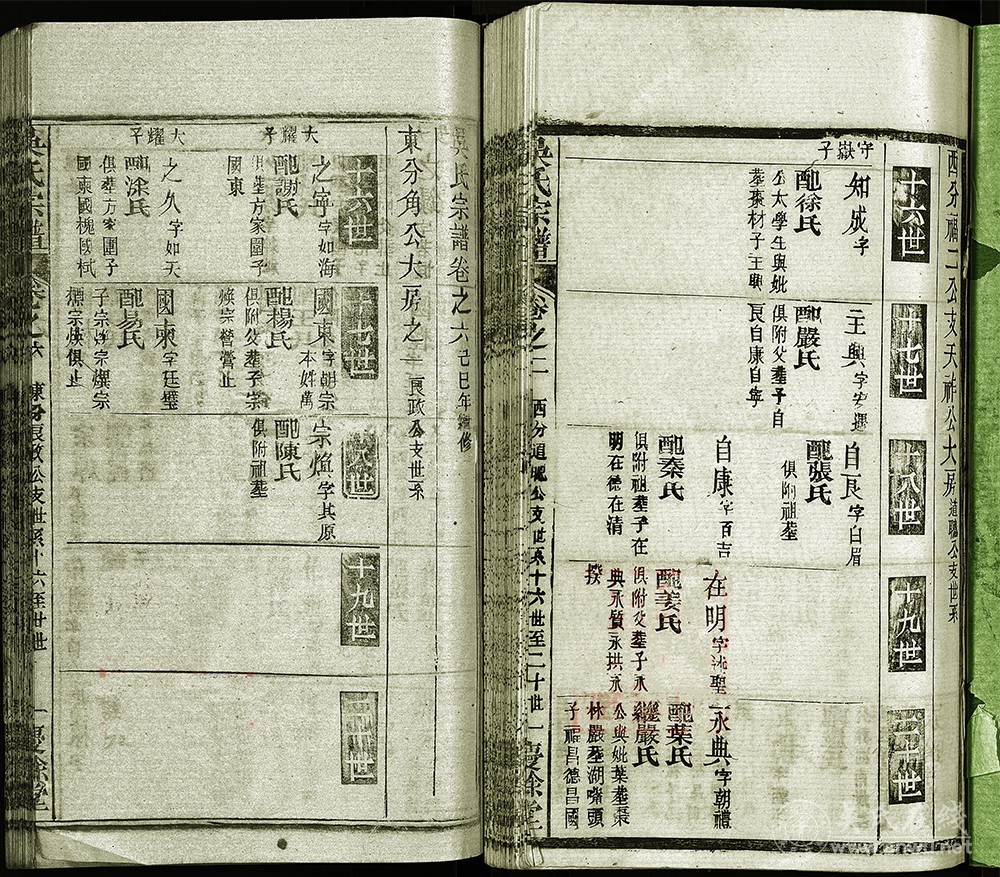 西分福二公支天祥公大房道聰公支世系
十六世
十七世
十八世
十九世
二十世
守嶽子
知成字
配徐氏
公太學生與妣
葬棗材子王興
王興字安選
配嚴氏
俱附父葬子自
艮自康自寧
自艮字白眉
配張氏
俱附祖葬
自康字百吉
配秦氏
俱附祖葬子在
明在德在清
在明字洮聖
配姜氏
俱附父葬子永
典永質永拱永
揆
永典字朝禮
配葉氏
繼嚴氏
公與妣葉葬棗
林嚴葬湖嘴頭
子福昌德昌國
吳氏宗譜
卷之二
西分道聰公支世系十六世至二十世
一
慶餘堂
吳氏宗譜卷之六己巳年續修
東分角公大房之一良政公支世系
十六世
十七世
十八世
十九世
二十世
大耀子
之寧字如海
配謝氏
俱葬方家園子
國東
大耀子
之久字如天
配涂氏
俱葬方家園子
國柬國槐國栻
國東字朝宗
本姓萬
配楊氏
俱附父葬子宗
煥宗營營止
國柬字廷璧
配易氏
子宗焯宗熼宗
宗煐俱止
宗焰字其原
配陳氏
俱附祖葬
吳氏宗譜
卷之六
東分良政公支世系十六至廿世
一
慶餘堂